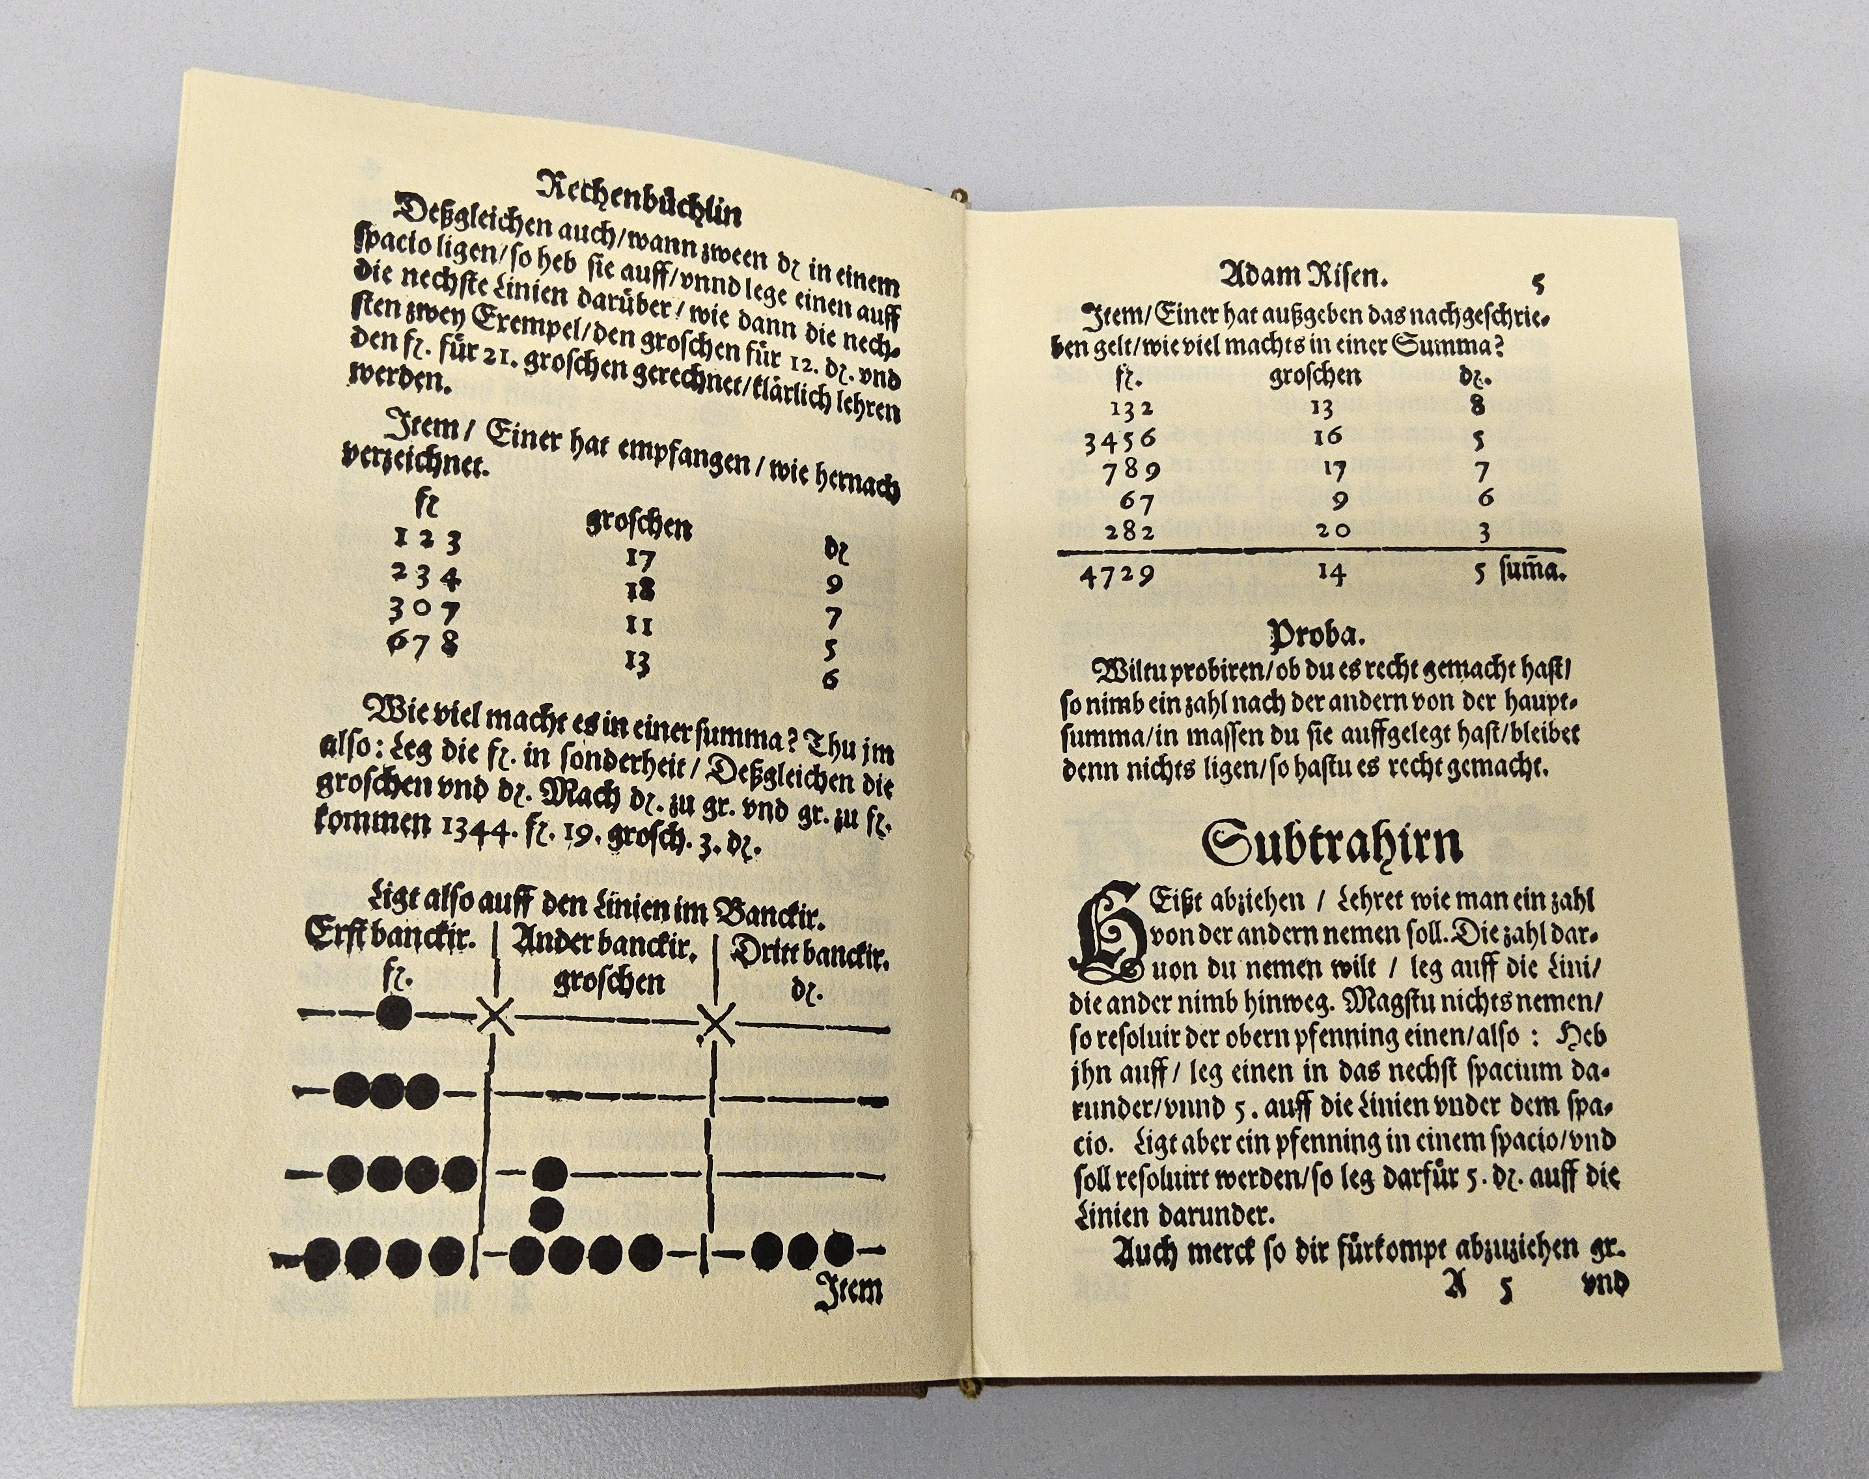 Rechenbüchlin
Deßgleichen auch/wann zween dₑ in einem
spacio ligen/so heb sie auff/vnnd lege einen auff
die nechste Linien darüber/wie dann die nech-
sten zwey Exempel/den groschen für 12. dₑ. vnd
den fₑ. für 21. groschen gerechnet/klärlich lehren
werden.
Item/ Einer hat empfangen/wie hernach
verzeichnet.
fₑ groschen dₑ
123 17 9
234 18 7
307 11 5
678 13 6
Wie viel macht es in einer summa? Thu jm
also: Leg die fₑ. in sonderheit/ Deßgleichen die
groschen vnd dₑ. Mach dₑ. zu gr. vnd gr. zu fₑ.
kommen 1344. fₑ. 19. grosch. 3. dₑ.
Ligt also auff den Linien im Banckir.
Erst banckir. Ander banckir. Dritt banckir.
fₑ. groschen dₑ.
Item
Adam Risen. 5
Item/Einer hat außgeben das nachgeschrie-
ben gelt/wie viel machts in einer Summa?
fₑ. groschen dₑ.
132 13 8
3456 16 5
789 17 7
67 9 6
282 20 3
4729 14 5 sum̄a.
Proba.
Wiltu probiren/ob du es recht gemacht hast/
so nimb ein zahl nach der andern von der haupt-
summa/in massen du sie auffgelegt hast/bleibet
denn nichts ligen/so hastu es recht gemacht.
Subtrahirn
HEißt abziehen / Lehret wie man ein zahl
von der andern nemen soll. Die zahl dar-
uon du nemen wilt / leg auff die Lini/
die ander nimb hinweg. Magstu nichts nemen/
so resoluir der obern pfenning einen/also : Heb
jhn auff/ leg einen in das nechst spacium da-
runder/vnnd 5. auff die Linien vnder dem spa-
cio. Ligt aber ein pfenning in einem spacio/vnd
soll resoluirt werden/so leg darfür 5. dₑ. auff die
Linien darunder.
Auch merck so dir fürkompt abzuziehen gr.
A 5 vnd